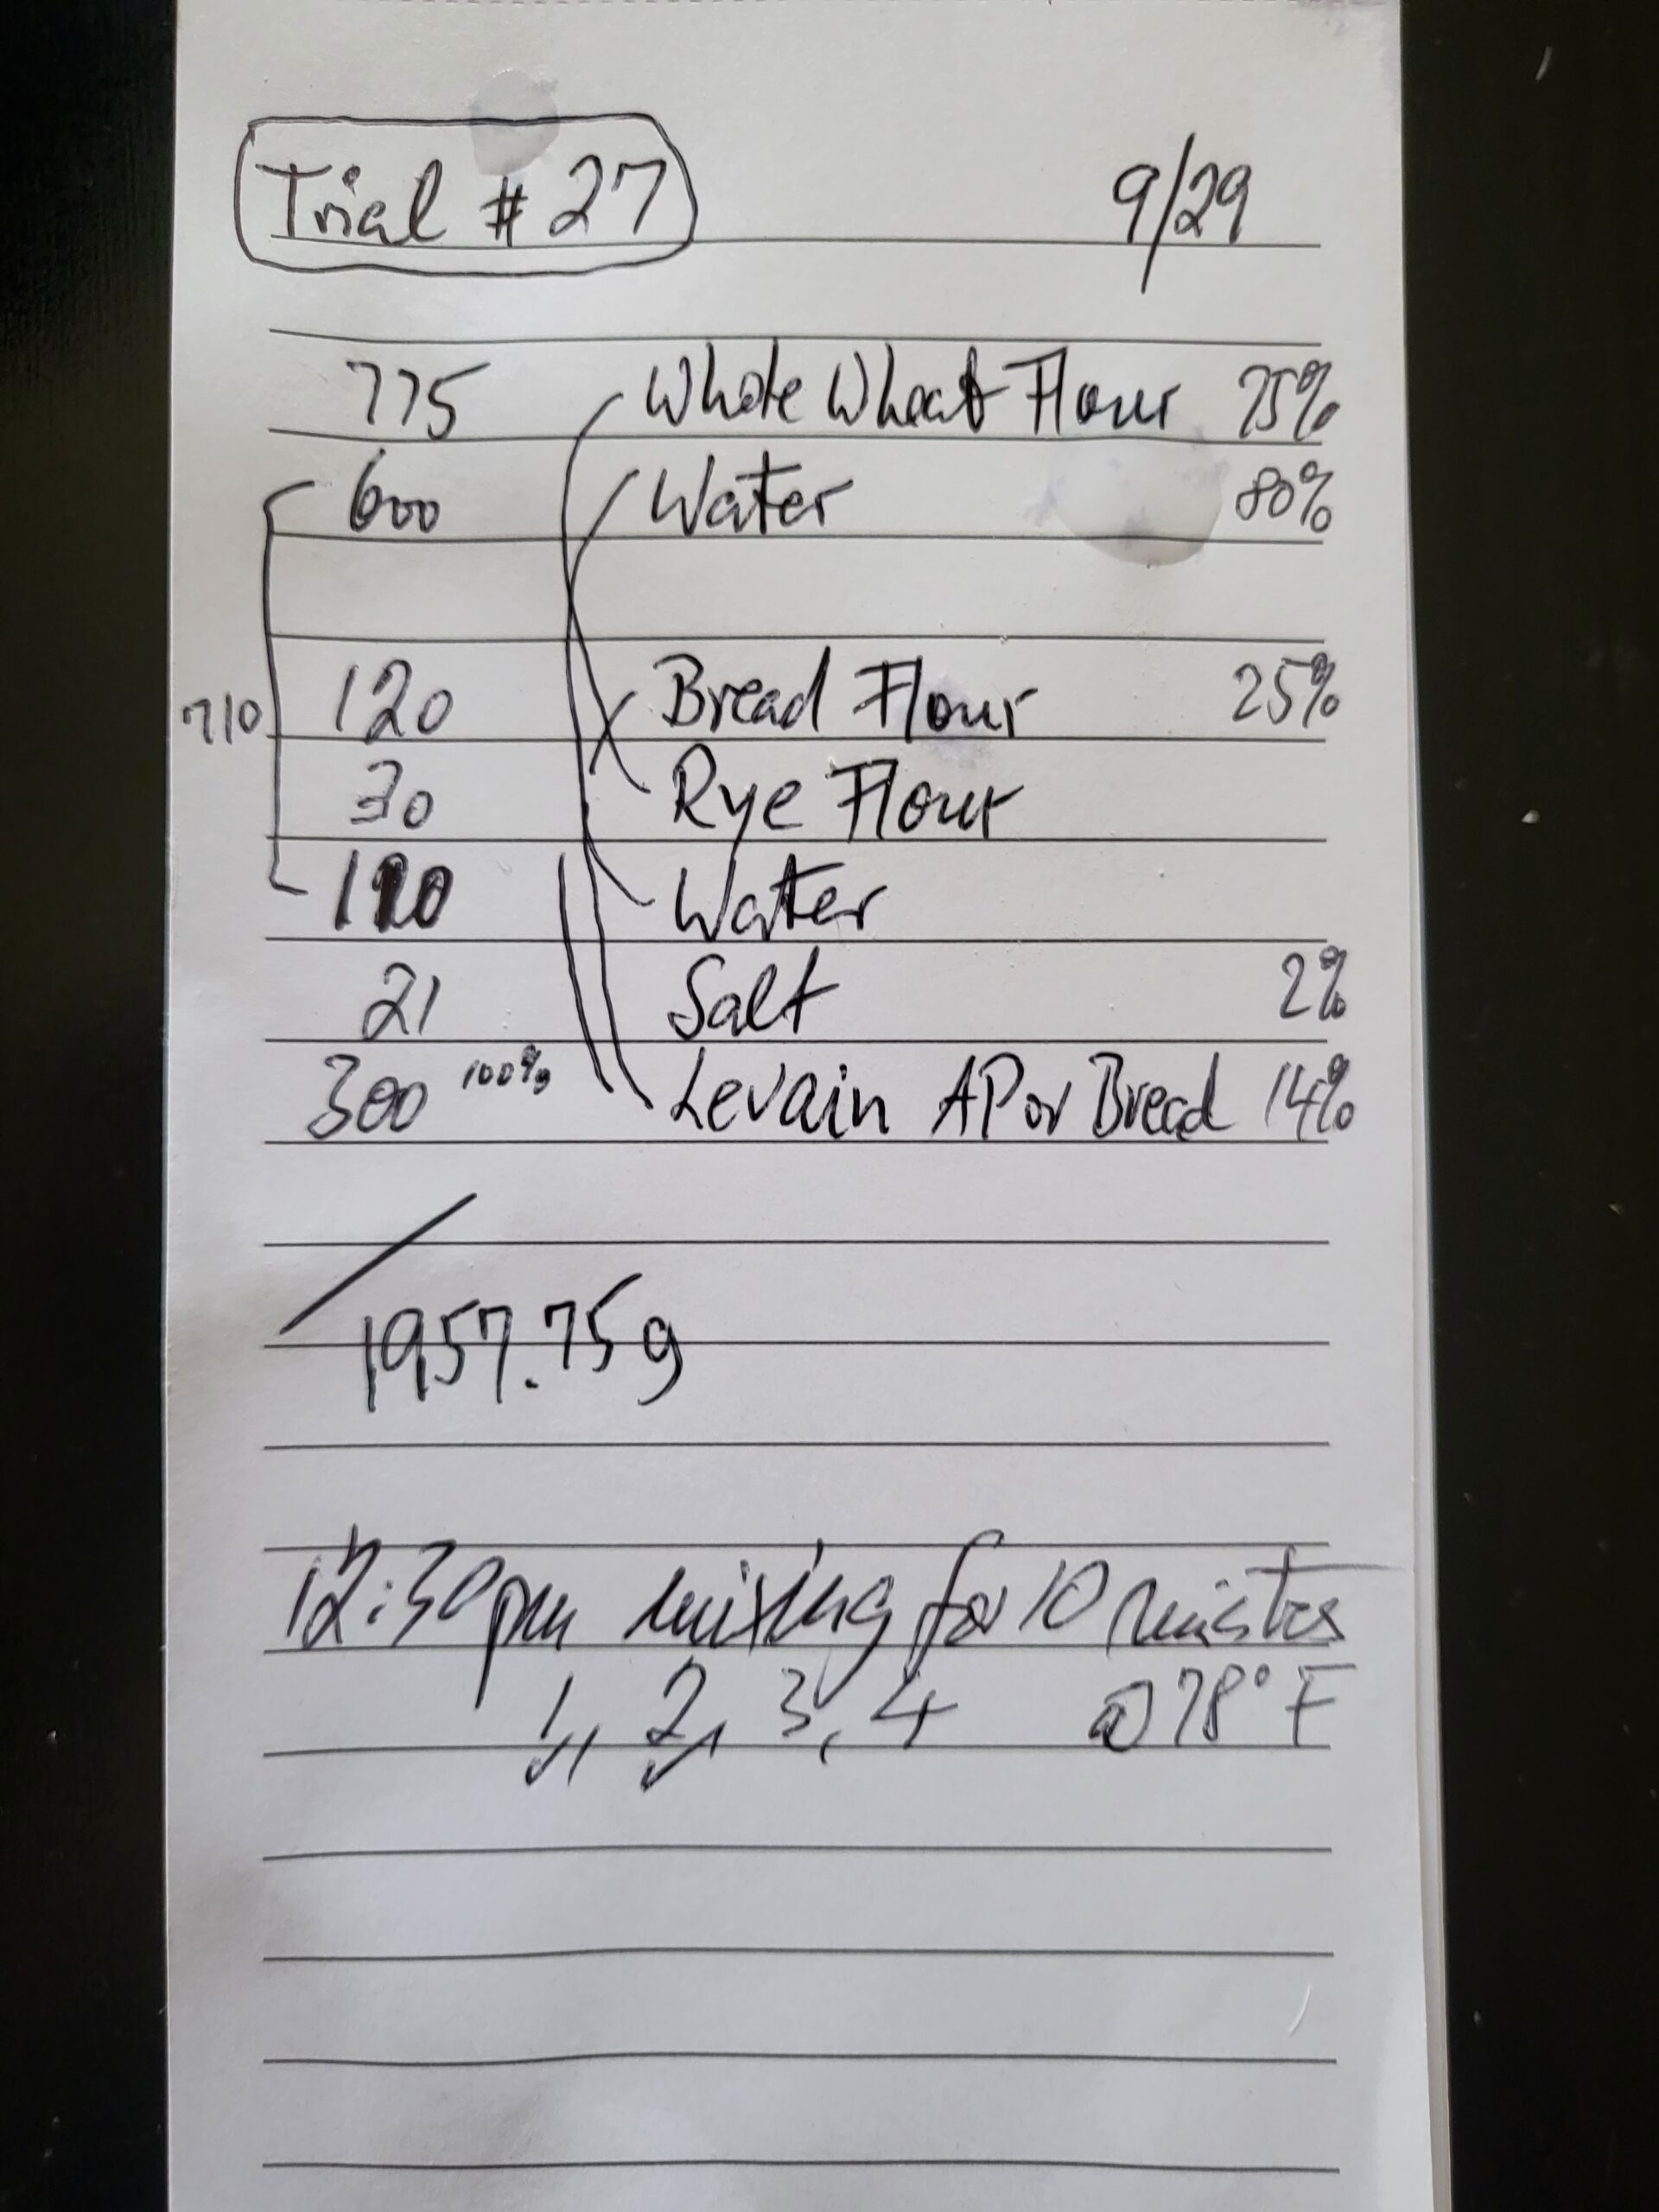 Trial # 27 9/29
775 Whole Wheat Flour 75%
600 Water 80%
710 120 Bread Flour 25%
30 Rye Flour
110 Water
21 Salt 2%
300 100% Levain AP or Bread 14%
1957.75g
12:30pm mixing for 10 minutes
1, 2, 3, 4 @78° F